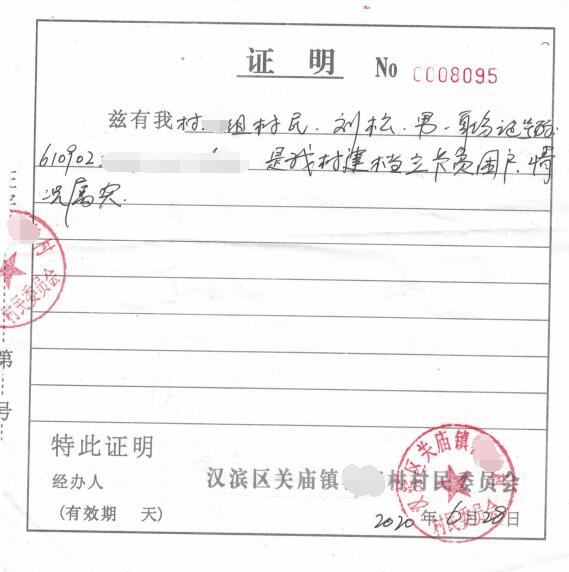 证明 No 0008095
兹有我村 组村民. 刘松. 男. 身份证号码
610902 是我村建档立卡贫困户. 情
况属实.
村
村民委员会
第
号
特此证明
经办人 汉滨区关庙镇 村村民委员会
(有效期 天) 2020年6月28日
汉滨区关庙镇 村
村民委员会